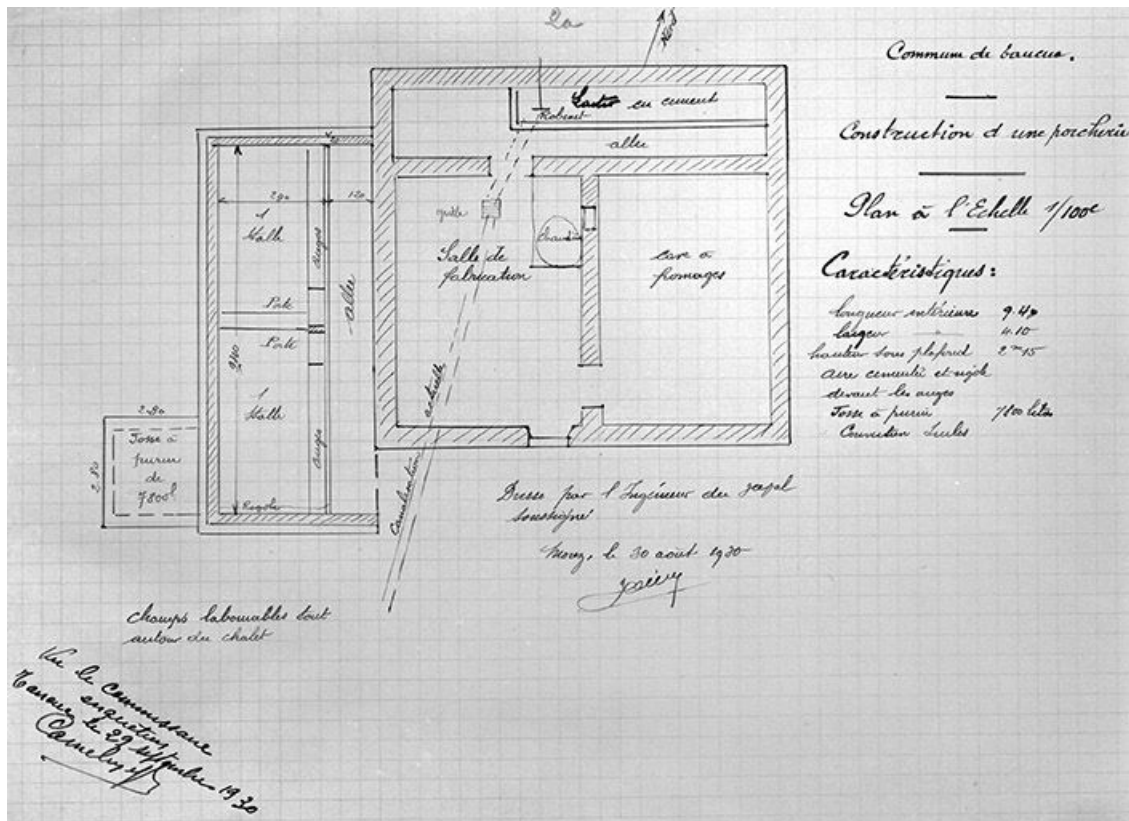 2a
Nord
Commune de
Construction d'une porcherie
Plan à l'Echelle 1/100e
Caractéristiques:
longueur intérieure 9.40
largeur — 4.10
hauteur sous plafond 2m15
aire cimentée et rigole
devant les auges
Fosse à purin 7800 litres
Couverture Tuiles
en ciment
Robinet
allée
grille
Chaudière
Salle de
fabrication
cave à
fromages
2.90
1.20
1
Stalle
Auges
allée
Porte
Porte
9.40
1
Stalle
Auges
Rigole
Canalisation actuelle
2.80
2.80
Fosse à
purin
de
7800 l
Dressé par l'Ingénieur du
soussigné
Morez, le 30 août 1930
champs labourables tout
autour du chalet
Vu le Commissaire
enquêteur
le 29 septembre 1930